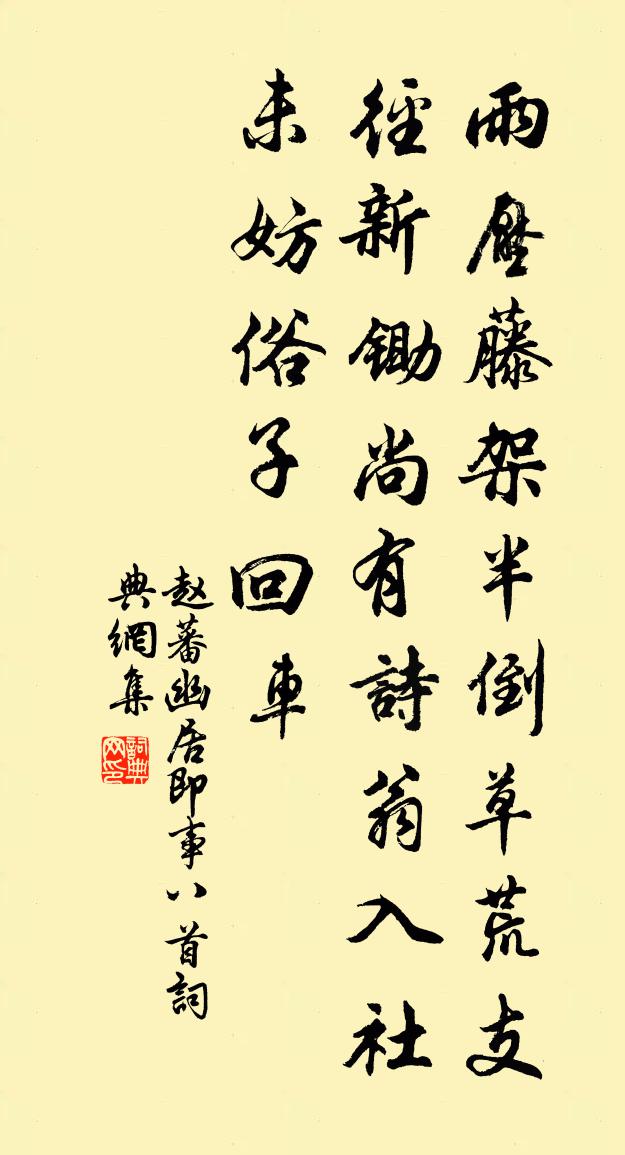 雨壓藤架半倒草荒支
徑新鋤尚有詩翁入社
未妨俗子回車
赵蕃幽居即事八首詞
典網集
詞典網印